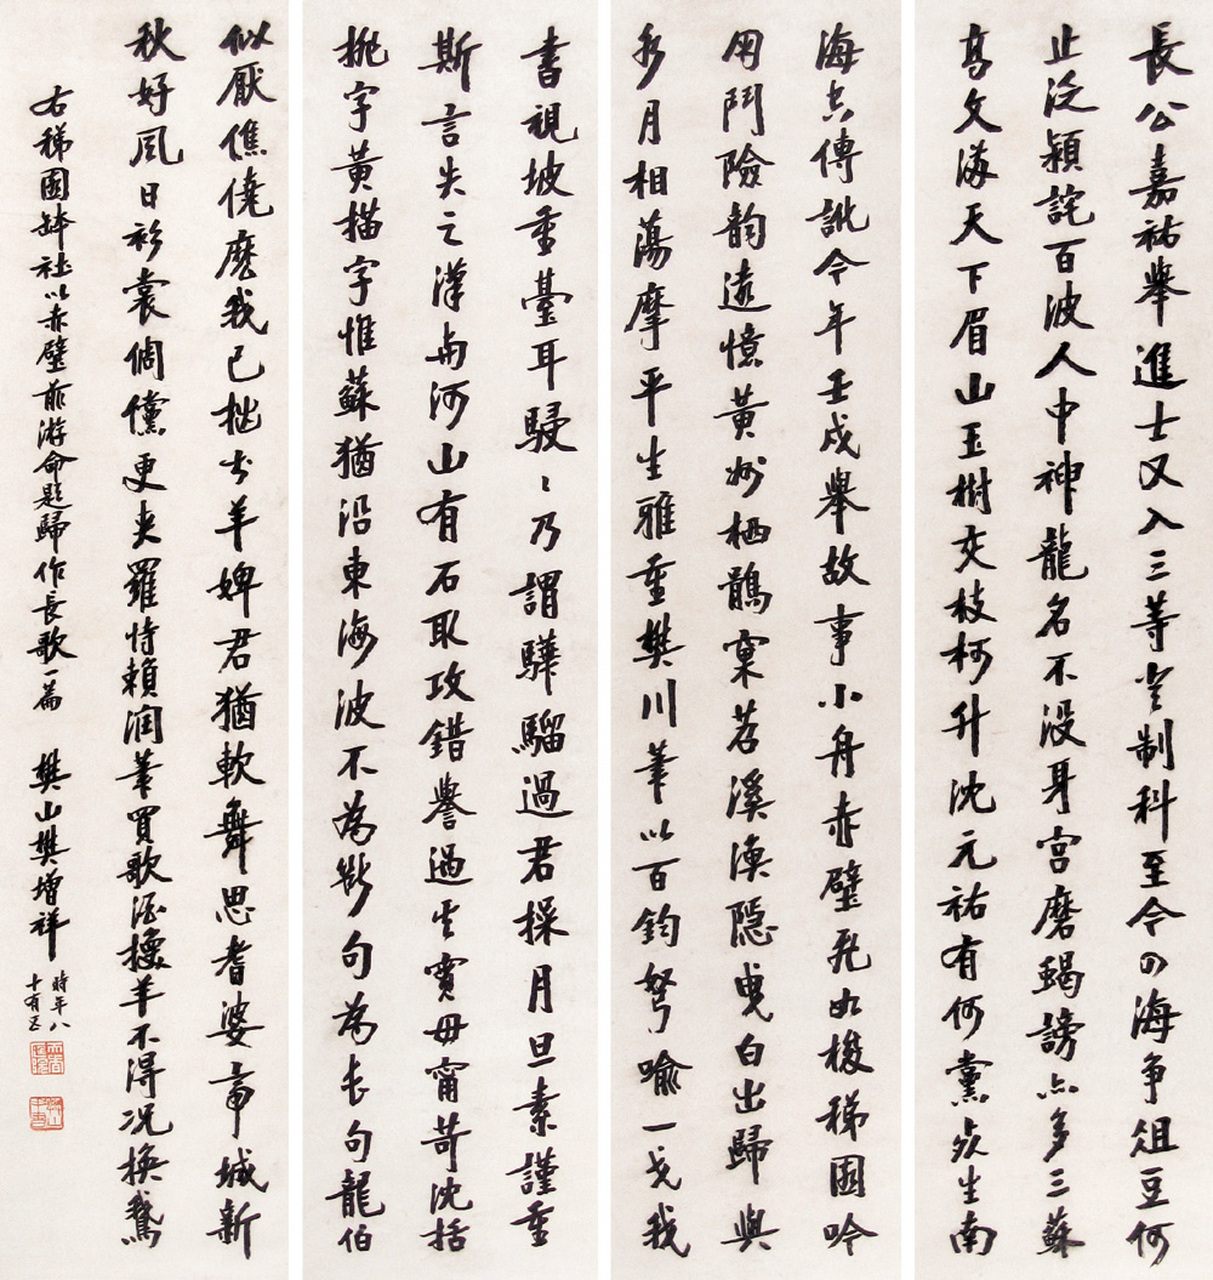 長公嘉祐舉進士又入三等空制科至今四海爭俎豆何
止泛潁詫百波人中神龍名不沒身宮磨蝎謗亦多三蘇
高文海天下眉山玉樹交枝柯升沈元祐有何黨炎生南
海古傳訛今年壬戌舉故事小舟赤壁飛如梭稊園吟
用鬥險韵遠憶黃州栖鶻窠苕溪漁隱曳白出歸與
水月相蕩摩平生雅重樊川筆以百鈞弩喻一戈我
書視坡重臺耳駸〻乃謂驊騮過君操月旦素謹重
斯言失之漢與河山有石取攻錯譽過其實毋甯苛沈括
挑字黃描字惟蘇猶沿東海波不為斷句為長句龍伯
似厭僬僥麼我已拙書羊婢君猶軟舞思耆婆帝城新
秋好風日衫裳倜儻更夾羅恃賴潤筆買歌酒換羊不得况換鵝
右稊園鉢社以赤壁前游命題歸作長歌一篇 樊山樊增祥
時年八
十有五